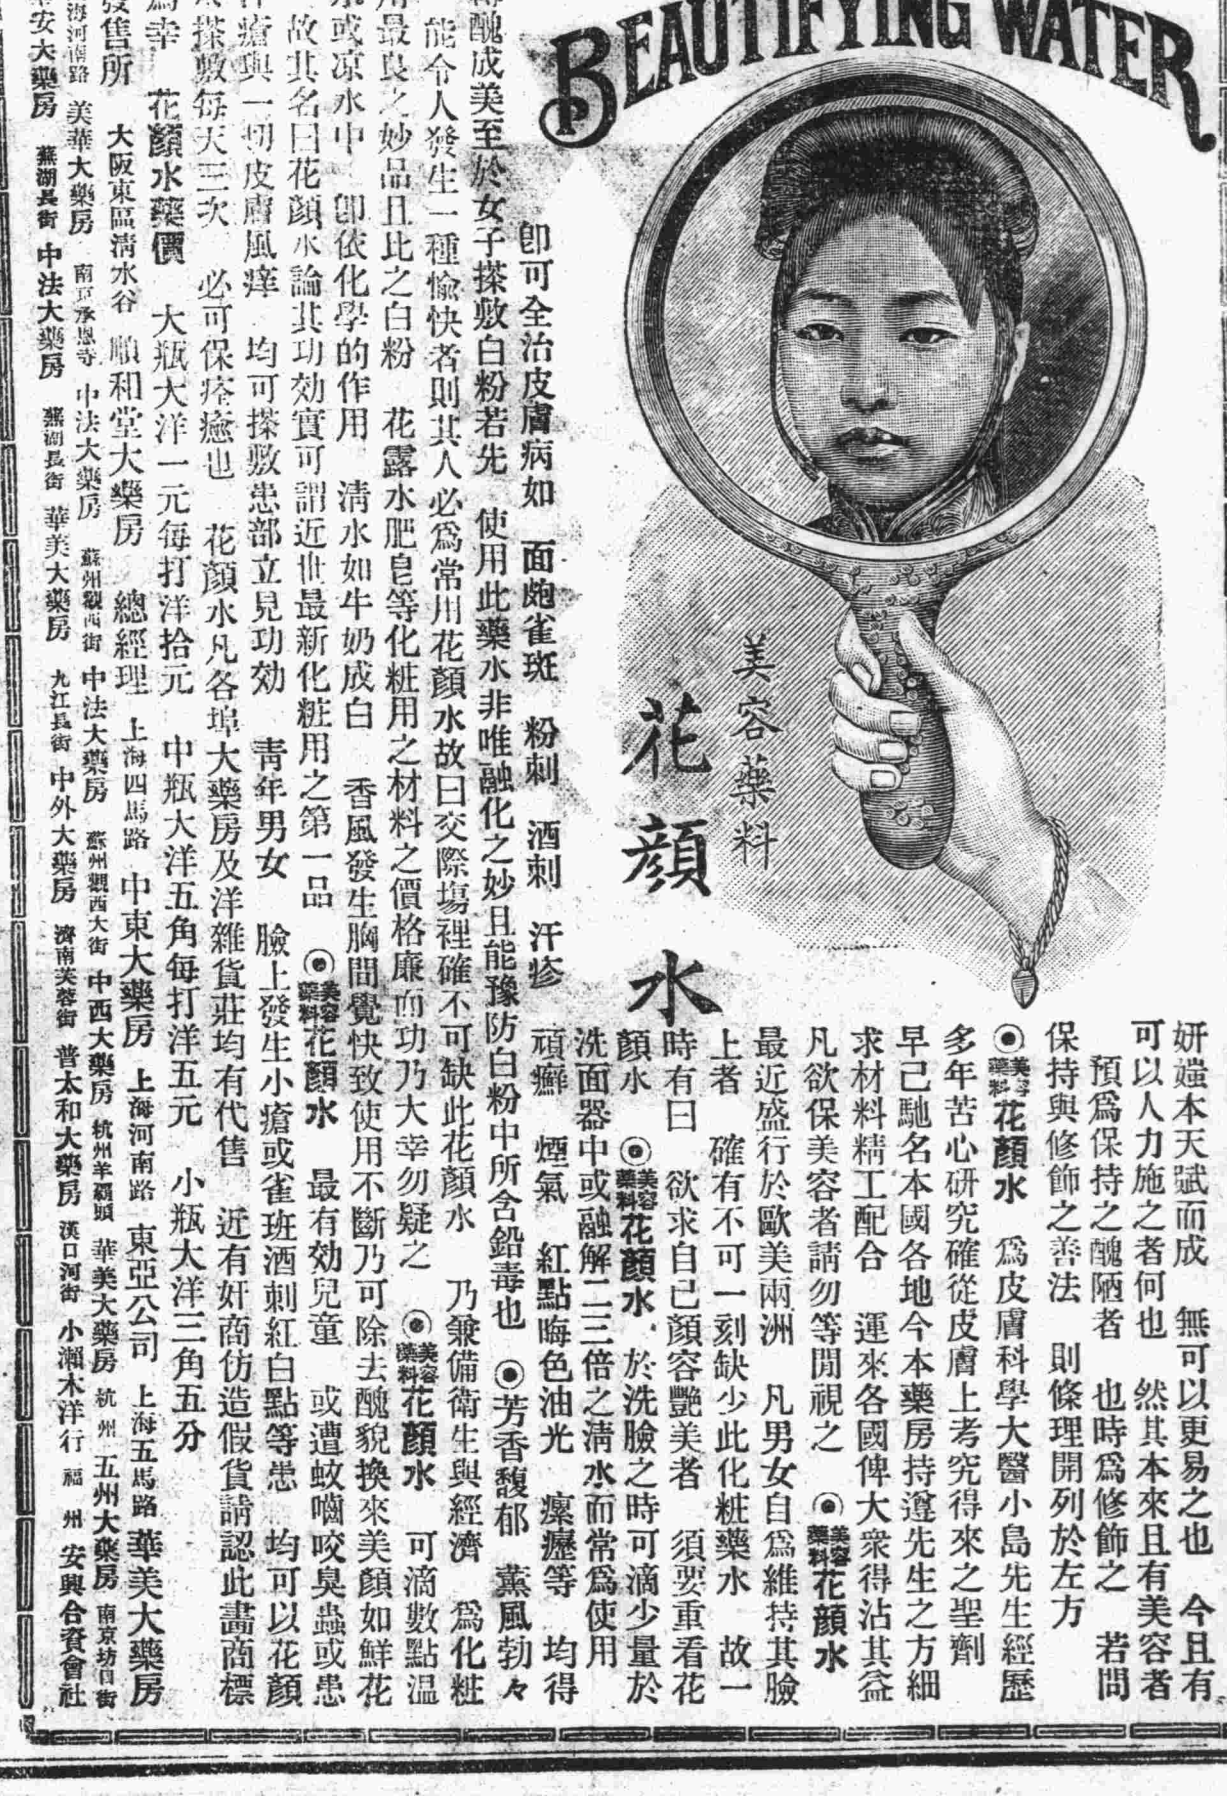 BEAUTIFYING WATER
美容藥料
花顏水
妍媸本天賦而成　無可以更易之也　今且有
可以人力施之者何也　然其本來且有美容者
預爲保持之醜陋者　也時爲修飾之　若問
保持與修飾之善法　則條理開列於左方
◉美容藥料花顏水　爲皮膚科學大醫小島先生經歷
多年苦心研究確從皮膚上考究得來之聖劑
早已馳名本國各地今本藥房持遵先生之方細
求材料精工配合　運來各國俾大衆得沾其益
凡欲保美容者請勿等閒視之　◉美容藥料花顏水
最近盛行於歐美兩洲　凡男女自爲維持其臉
上者　確有不可一刻缺少此化粧藥水　故一
時有曰　欲求自己顏容艷美者　須要重看花
顏水　◉美容藥料花顏水　於洗臉之時可滴少量於
洗面器中或融解二三倍之清水而常爲使用
頑癬　煙氣　紅點晦色油光　瘰癧等　均得
卽可全治皮膚病如　面皰雀斑　粉刺　酒刺　汗疹
醜成美至於女子搽敷白粉若先　使用此藥水非唯融化之妙且能豫防白粉中所含鉛毒也　◉芳香馥郁　薰風勃々
能令人發生一種愉快者則其人必爲常用花顏水故曰交際場裡確不可缺此花顏水　乃兼備衛生與經濟　爲化粧
用最良之妙品且比之白粉　花露水肥皂等化粧用之材料之價格廉而功乃大幸勿疑之　◉美容藥料花顏水　可滴數點温
水或凉水中　卽依化學的作用　清水如牛奶成白　香風發生胸間覺快致使用不斷乃可除去醜貌換來美顏如鮮花
故其名曰花顏水論其功効實可謂近世最新化粧用之第一品　◉美容藥料花顏水　最有効兒童　或遭蚊嚙咬臭蟲或患
瘡與一切皮膚風痒　均可搽敷患部立見功効　靑年男女　臉上發生小瘡或雀班酒刺紅白點等患　均可以花顏
搽敷每天三次　必可保痊癒也　花顏水凡各埠大藥房及洋雜貨莊均有代售　近有奸商仿造假貨請認此畵商標
爲幸　花顏水藥價　大瓶大洋一元每打洋拾元　中瓶大洋五角每打洋五元　小瓶大洋三角五分
發售所　大阪東區清水谷　順和堂大藥房　總經理　上海四馬路　中東大藥房　上海河南路　東亞公司　上海五馬路　華美大藥房
海河南路　美華大藥房　南京承恩寺　中法大藥房　蘇州觀西街　中法大藥房　蘇州觀西大街　中西大藥房　杭州羊覇頭　華美大藥房　杭州　五州大藥房　南京坊口街
安大藥房　蕪湖長街　中法大藥房　蕪湖長街　華美大藥房　九江長街　中外大藥房　濟南芙蓉街　普太和大藥房　漢口河街　小瀨木洋行　福州　安興合資會社